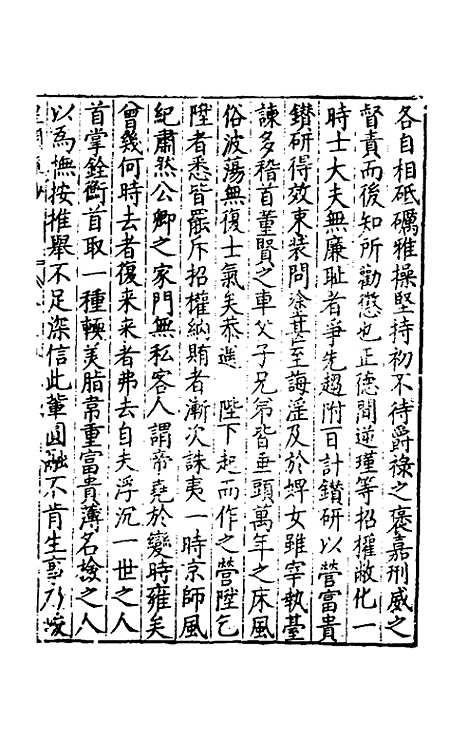 各自相砥礪雅操堅持初不待爵祿之褒嘉刑威之
督責而後知所勸懲也正德間逆瑾等招權敝化一
時士大夫無廉恥者爭先趨附日計鑽研以營富貴
鑚研得效束裝問塗甚至誨淫及於婢女雖宰執臺
諫多稽首董賢之車父子兄弟皆垂頭萬年之床風
俗波蕩無復士氣矣恭遇 陛下起而作之營陞乞
陞者悉皆罷斥招權納賄者漸次誅夷一時京師風
紀肅然公卿之家門無私客人謂帝堯於變時雍矣
曾幾何時去者復来来者弗去自夫浮沉一世之人
首掌銓衡首取一種軟美脂韋重富貴薄名檢之人
以為撫按推舉不足深信此輩圓融不肯生事